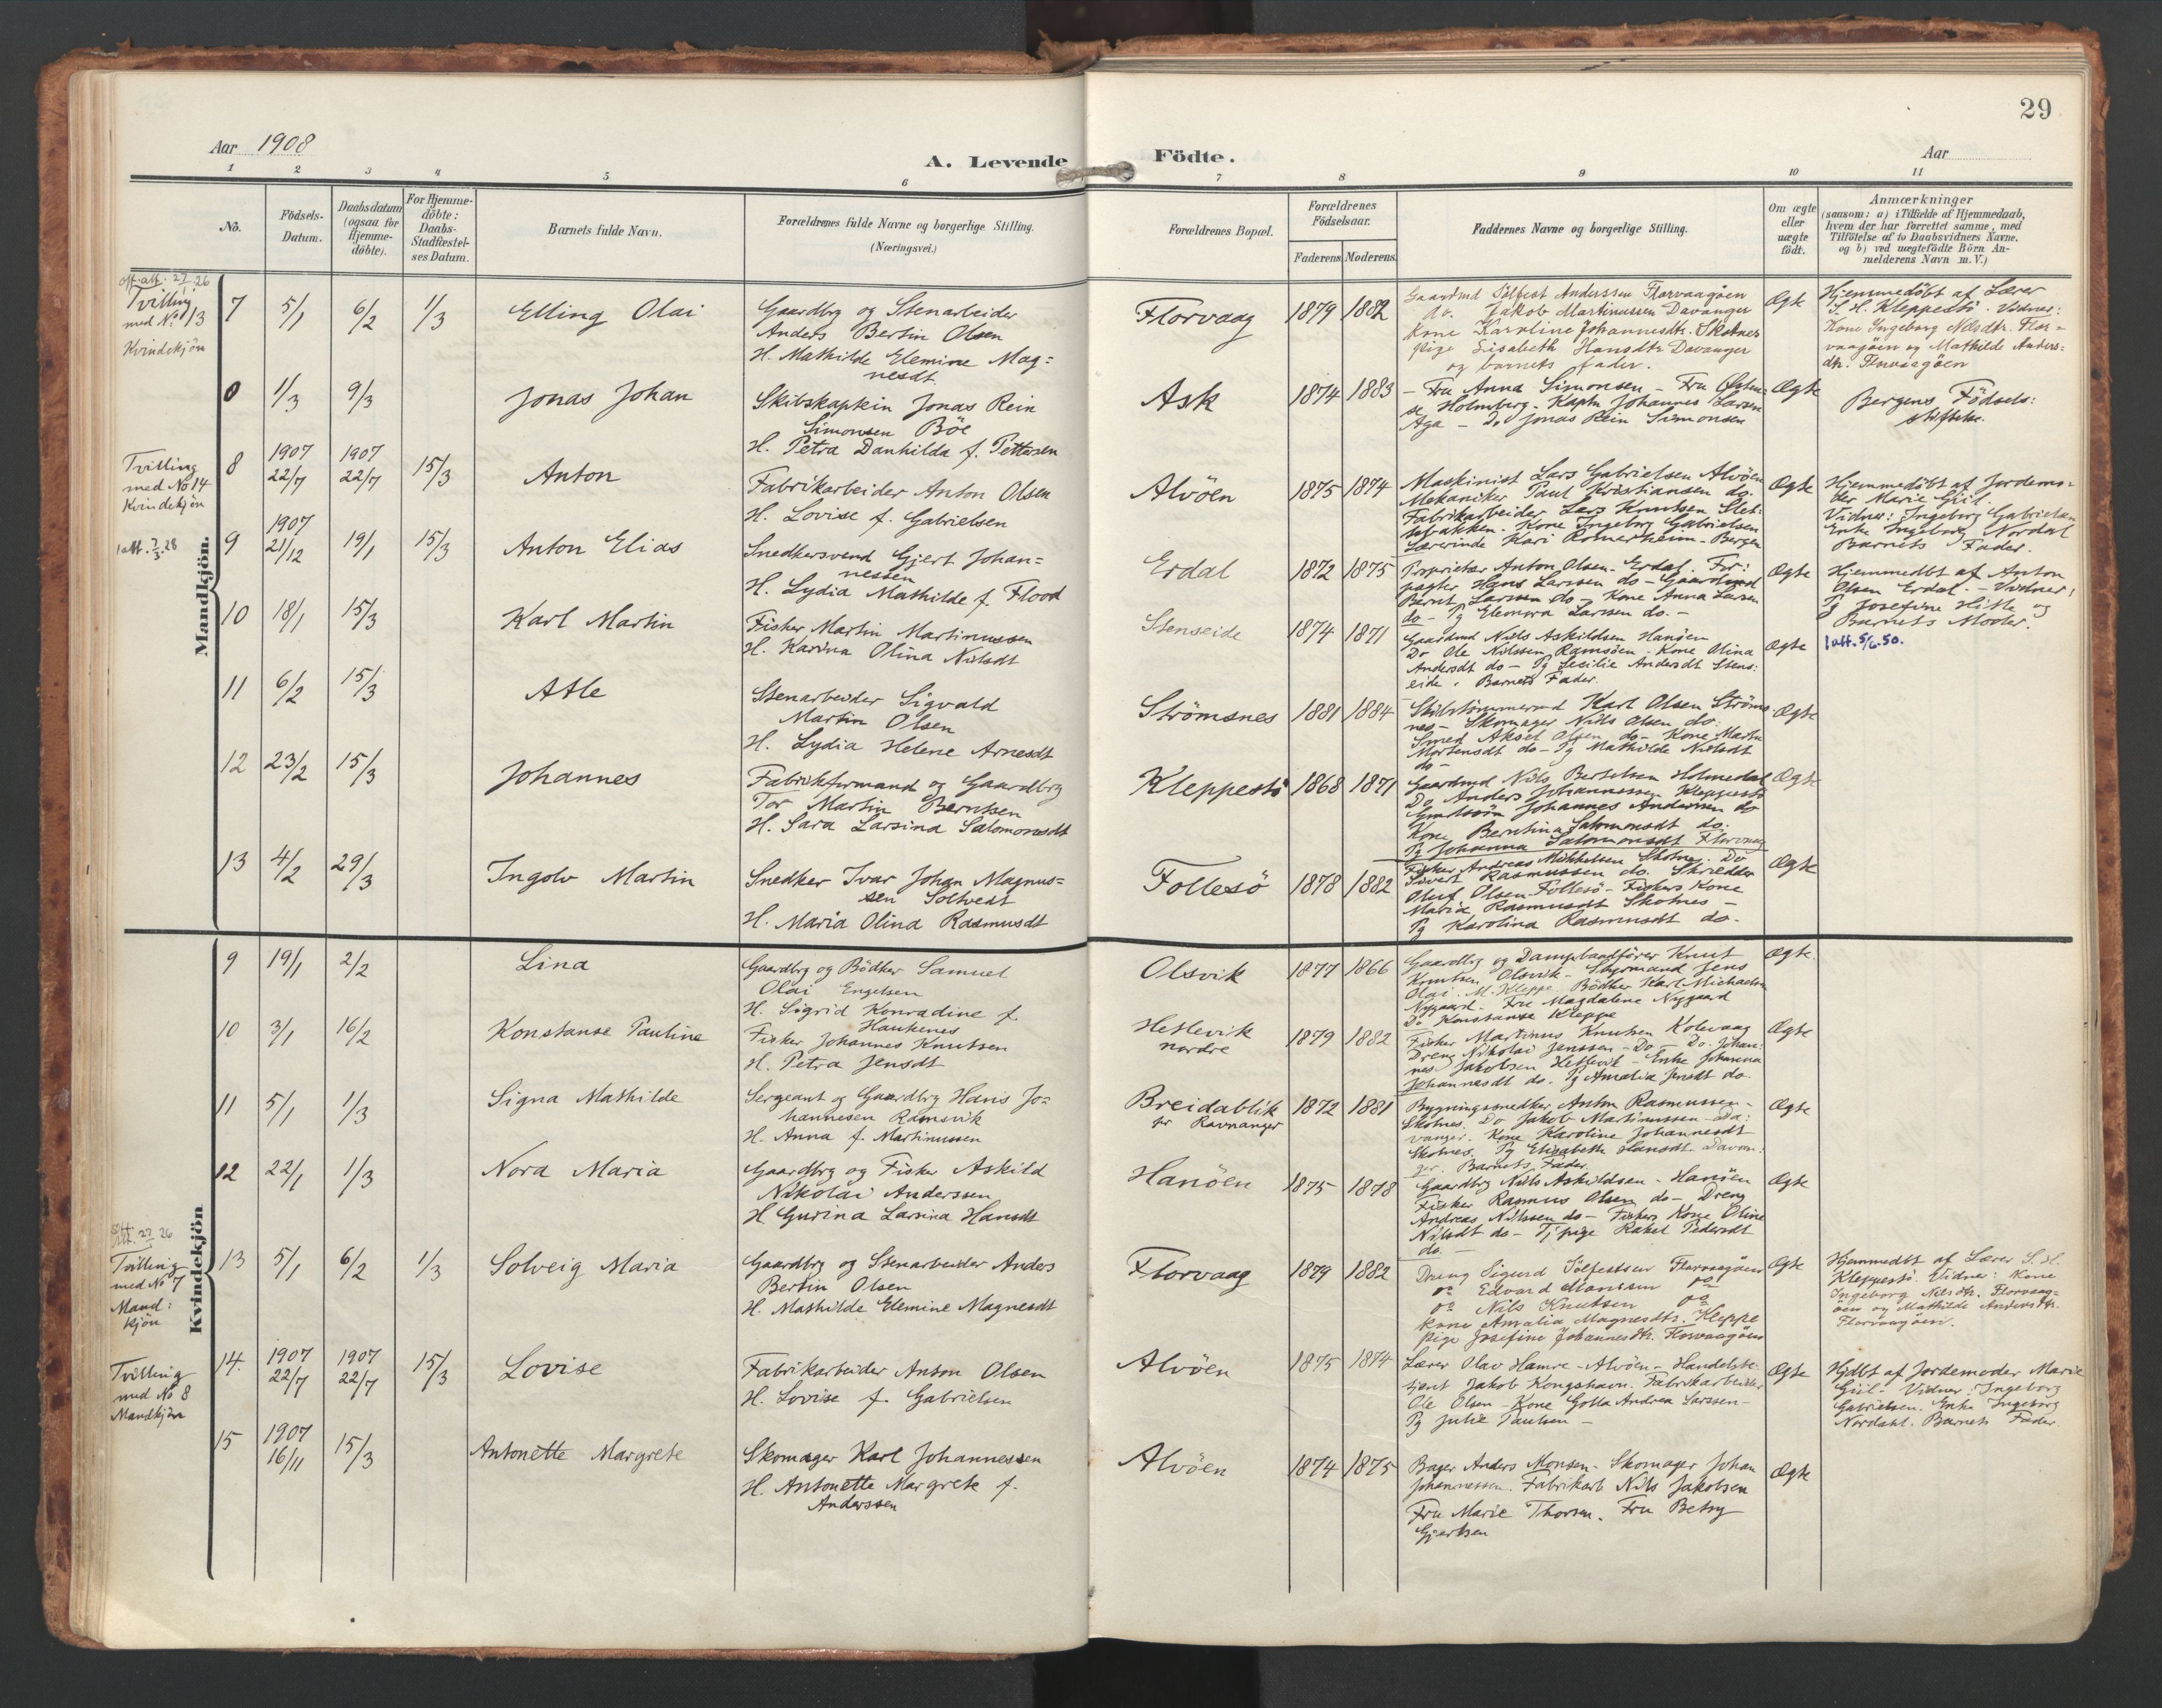 29
Aar 1908
A. Levende Födte.
Aar
1 2 3 4 5 6 7 8 9 10 11
No.
Födsels-Datum.
Daabsdatum (ogsaa for Hjemme-döbte).
For Hjemme-döbte: Daabs-Stadfæstel-ses Datum.
Barnets fulde Navn.
Forældrenes fulde Navne og borgerlige Stilling.
(Næringsvei.)
Forældrenes Bopæl.
Forældrenes Födselsaar.
Faderens Moderens.
Faddernes Navne og borgerlige Stilling.
Om ægte eller uægte födt.
Anmærkninger
(saasom: a) i Tilfælde af Hjemmedaab, hvem der har forrettet samme, med Tilföielse af to Daabsvidners Navne. og b) ved uægtefödte Börn An-melderens Navn m. V.)
Mandkjön.
Tvilling
med No 13
Kvindekjön
7 5/1 6/2 1/3 Elling Olai
Gaardbrg og Stenarbeider
Anders Bertin Olsen
H. Mathilde Elemine Mag=
nesdt.
Florvaag 1879 1882
Gaardmd Sölfest Anderssen Florvaagöen
do. Jakob Martinussen Davanger
Kone Karoline Johannesdtr. Skotnes
Pige Lisabeth Hansdtr Davanger
og barnets fader.
Ægte
Hjemmedöbt af Lærer
S. H. Kleppestö. Vidner:
Kone Ingeborg Nilsdtr. Flor-
vaagöen og Mathilde Anders-
dtr. Florvaagöen
0 1/3 9/3 Jonas Johan
Skibskaptein Jonas Rein
Simonsen Böe
H. Petra Danhilda f. Pettersen
Ask 1874 1883
- Fru Anna Simonsen - Fru
Holmberg. Kaptn Johannes Larsen
Aga - Do Jonas Rein Simonsen
Ægte
Bergens Födsels:
stiftelse.
Tvilling
med No 14
Kvindekjön
8 1907 22/7 1907 22/7 15/3 Anton
Fabrikarbeider Anton Olsen
H. Lovise f. Gabrielsen
Alvöen 1875 1874
Maskinist Lars Gabrielsen Alvöen
Mekaniker Paul Kristiansen do.
Fabrikarbeider Lars Knutsen Slet:
tebakken. Kone Ingeborg Gabrielsen
Lærerinde Kari Romerheim - Bergen
Ægte
Hjemmedöbt af Jordemo-
der Marie Giil.
Vidner: Ingeborg Gabrielsen
Enke Ingeborg Nordal
Barnets Fader.
1 att. 7/3.28
9 1907 21/12 19/1 15/3 Anton Elias
Snedkersvend Gjert Johan=
nessen
H. Lydia Mathilde f. Flood
Erdal 1872 1875
Proprietær Anton Olsen - Erdal. For:
pagter Hans Larsen do - Gaardmd
Bernt Larsen do - Kone Anna Larsen
do - Pg Elenora Larsen do. -
Ægte
Hjemmedbt af Anton
Olsen Erdal. - Vidner:
Pg Josefine Hille og
Barnets Moder.
10 18/1 15/3 Karl Martin
Fisker Martin Martinussen
H. Karina Olina Nilsdt
Stenseide 1874 1871
Gaardmd Nils Askildsen Hanöen
Do Ole Nilssen Ramsöen. Kone Olina
Andersdt do - Pg Cecilie Andersdt Stens:
eide. Barnets Fader.
Ægte
1 att. 5/6.50.
11 6/2 15/3 Atle
Stenarbeider Sigvald
Martin Olsen
H. Lydia Helene Arnesdt
Strömsnes 1881 1884
Skibstömmermd Karl Olsen Ströms
nes - Skomager Nils Olsen do.
Smed Aksel Olsen do - Kone Marta
Mortensdt do - Pg Mathilde Nielsdt
do -
Ægte
12 23/2 15/3 Johannes
Fabrikformand og Gaardbrg
Tor Martin Berntsen
H. Sara Larsina Salomonsdt
Kleppestö 1868 1871
Gaardmd Nils Bertelsen Holmedal
Do Anders Johannessen Kleppestö
Johannes Andersen do
Kone Berntina Salomonsdt do.
Pg Johanna Salomonsdt Florvaag
Ægte
13 4/2 29/3 Ingolv Martin
Snedker Ivar Johan Magnus=
sen Soltvedt
H. Maria Olina Rasmusdt
Follesö 1878 1882
Fisker Andreas Mikkelsen Skotnes. Do
Sivert Rasmussen do. Skrædder
Oluf Olsen Follesö - Fiskers Kone
Maria Rasmusdt Skotnes -
Pg Karolina Rasmusdt do -
Ægte
Kvindekjön
9 19/1 2/2 Lina
Gaardbrg og Bödker Samuel
Olai Engelsen
H. Sigrid Konradine f.
Haukenes
Olsvik 1877 1866
Gaardbrg og Dampbaadförer Knut
Knutsen Olsvik - Styrmand Jens
Olai M. Kleppe Bödker Karl Michaelsen
Nygaard. Fru Magdalene Nygaard
Do Konstanse Kleppe
Ægte.
10 3/1 16/2 Konstanse Pauline
Fisker Johannes Knutsen
H. Petra Jensdt
Hetlevik nordre 1879 1882
Fisker Martinus Knutsen Kolevaag
Dreng Nikolai Jenssen - Do - Do. Johan:
nes Jakobsen Hetlevik - Enke Johanna
Johannesdt do. Pg Amalia Jensdt do.
Ægte
11 5/1 1/3 Signa Mathilde
Sergeant og Gaardbrg Hans Jo=
hannesen Ramsvik
H. Anna f. Martinussen
Breidablik
pr Ravnanger 1872 1881
Bygningssnedker Anton Rasmussen -
Skotnes. Do Jakob Martinussen - Da:
vanger. Kone Karoline Johannesdt
Skotnes. Pg Elisabeth Hansdt Davan:
ger. Barnets Fader.
Ægte
12 22/1 1/3 Nora Maria
Gaardbrg og Fisker Askild
Nikolai Anderssen
H Gurina Larsina Hansdt
Hanöen 1875 1878
Gaardbrg Nils Askildsen - Hanöen
Fisker Rasmus Olsen do - Dreng
Andreas Nilssen do - Fiskers Kone Oline
Nilsdt do - Tj.pige Rakel Pedersdt
do. -
Ægte
Tvilling
med No 7
Mand:
kjön
13 5/1 6/2 1/3 Solveig Maria
Gaardbrg og Stenarbeider Anders
Bertin Olsen
H. Mathilde Elemine Magnesdt
Florvaag 1879 1882
Dreng Sigurd Sölfestsen Florvaagöen
do Edvard Monssen do
do Nils Knutsen do
Kone Amalia Magnesdtr. Kleppe
Pige Josefine Johannesdtr. Florvaagöen
Ægte
Hjemmedbt af Lærer S. H.
Kleppestö. Vidner: Kone
Ingeborg Nilsdtr. Florvaag=
öen og Mathilde Andersdtr.
Florvaagöen.
Tvilling
med No 8
Mandkjön
14. 1907 22/7 1907 22/7 15/3 Lovise
Fabrikarbeider Anton Olsen
H. Lovise f. Gabrielsen
Alvöen 1875 1874
Lærer Olav Hamre - Alvöen - Handelsbe:
tjent Jakob Kongshavn. Fabrikarbeider
Ole Olsen - Kone Golla Andrea Larssen -
Pg Julie Paulsen -
Ægte
Hjdbt af Jordemoder Marie
Giil - Vidner: Ingeborg
Gabrielsen. Enke Ingeborg
Nordahl. Barnets Fader.
15 1907 16/11 15/3 Antonette Margrete
Skomager Karl Johannessen
H. Antonette Margrete f.
Anderssen
Alvöen 1874 1875
Bager Anders Monsen - Skomager Johan
Johannessen. Fabrikarb Nils Jakobsen
Fru Marie Thorsen. Fru Betsy
Gjertsen
Ægte